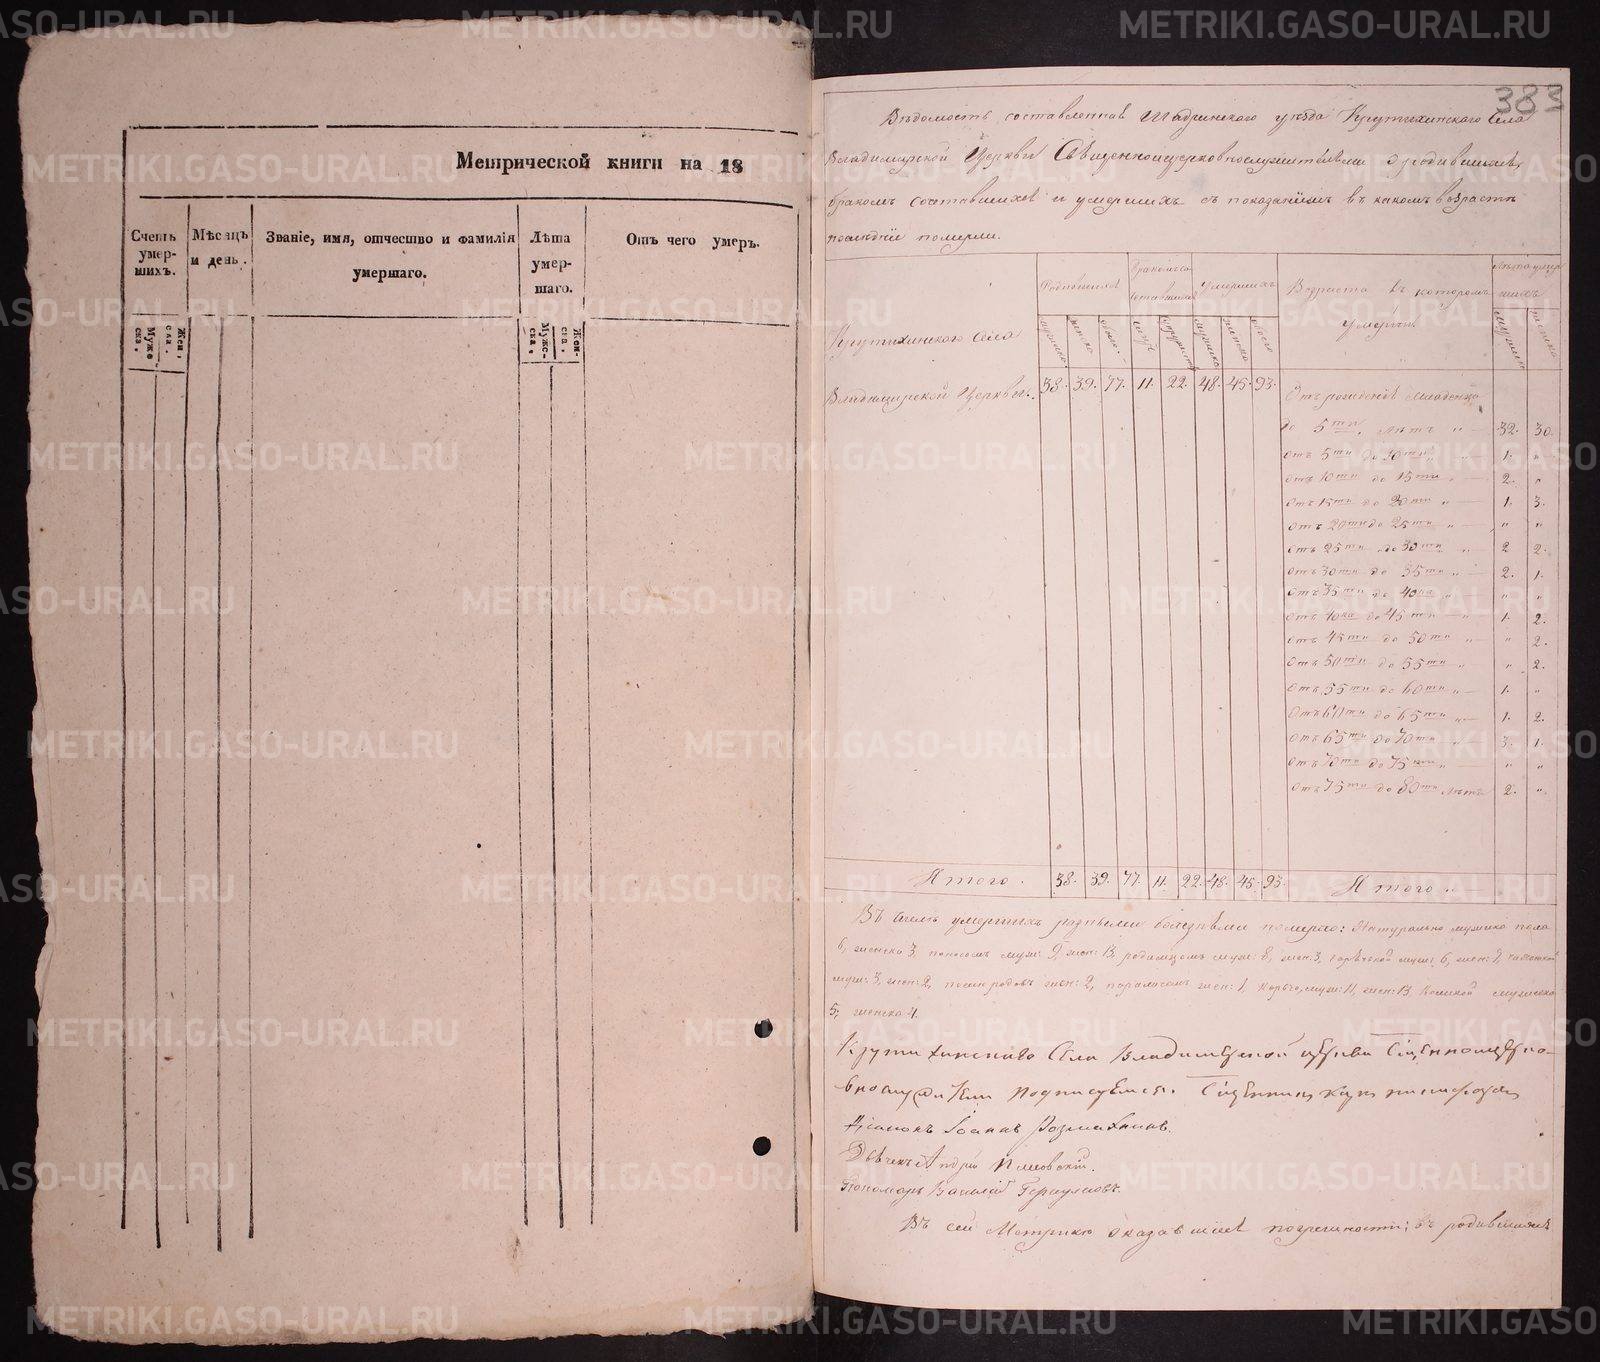 Метрической книги на 18
Счетъ умер-шихъ.
Муже ска.
Жен. ска.
Мѣсяцъ и день.
Званіе, имя, отчество и фамилія
умершаго.
Лѣта умер-шаго.
Муже-ска.
Жен-ска.
Отъ чего умеръ.
383
Вѣдомость составленная Шадринскаго уѣзда Крутихинскаго Села
Владимирской Церкви Священноцерковнослужителями о родившихся,
бракомъ сочетавшихся и умершихъ съ показаніемъ въ какомъ возрастѣ
послѣдніе померли.
Крутихинскаго Села
Владимирской Церкви.
Возраста въ которомъ
умерли
38. 39. 77. 11. 22. 48. 45. 93.
Отъ рожденія младенцо
до 5ти лѣтъ " 32. 30.
Отъ 5ти до 10ти " 1. "
Отъ 10ти до 15ти " 2. "
Отъ 15ти до 20ти " 1. 3.
Отъ 20ти до 25ти " " "
Отъ 25ти до 30ти " 2 2.
Отъ 30ти до 35ти " 2. 1.
Отъ 35ти до 40ка " " "
Отъ 40ка до 45ти " 1. 2.
Отъ 45ти до 50ти " " 2.
Отъ 50ти до 55ти " " 2.
Отъ 55ти до 60ти " 1. "
Отъ 60ти до 65ти " 1. 2.
Отъ 65ти до 70ти " 3. 1.
Отъ 70ти до 75ти " " "
Отъ 75ти до 80ти лѣтъ 2. "
Итого. 38. 39. 77. 11. 22. 48. 45. 93. Итого "
Въ числѣ умершихъ разными болѣзнями померло: Натурально мужска пола
6, женска 3, поносомъ муж: 9, жен: 13, родимцомъ муж: 8, жен: 3, горячкой муж: 6, жен: 9, чахоткой
муж: 3, жен: 2, послѣ родовъ жен: 2, параличемъ жен: 1, Корью, муж: 11, жен: 13
5, женска 4.
Крутихинскаго Села Владимирской церкви
подписуемся.
Діаконъ Іоаннъ
Дьячекъ Андрей
Пономарь Василій
Въ сей Метрикѣ оказавшіяся погрешности; въ родившихся
METRIKI.GASO-URAL.RU